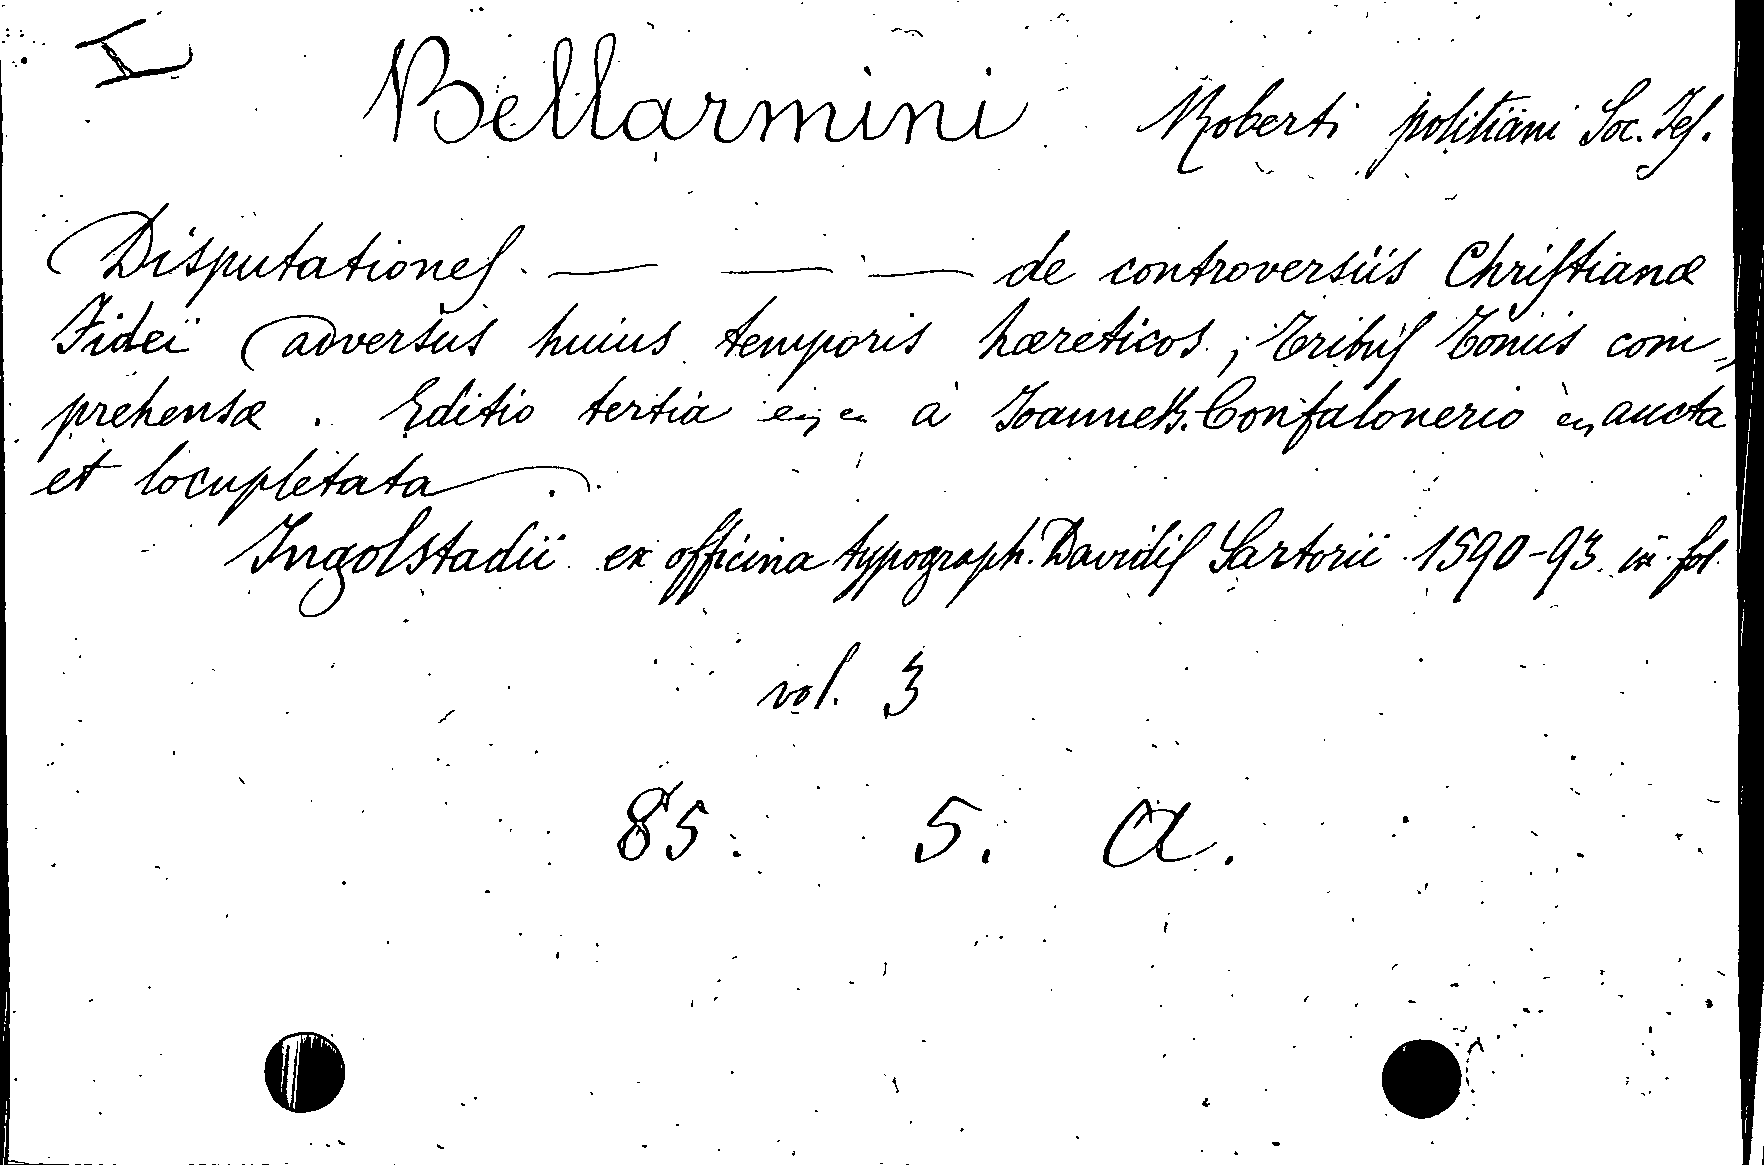 I
Bellarmini Roberti politiani Soc. Jes.
Disputationes — — — de controversiis Christianæ
Fidei adversus huius temporis hæreticos, Tribus Tomis com-
prehensæ. Editio tertia à Joanne B. Confalonerio aucta
et locupletata.
Ingolstadii ex officina typograph. Davidis Sartorii 1590-93 in fol.
vol. 3
85. 5. A.